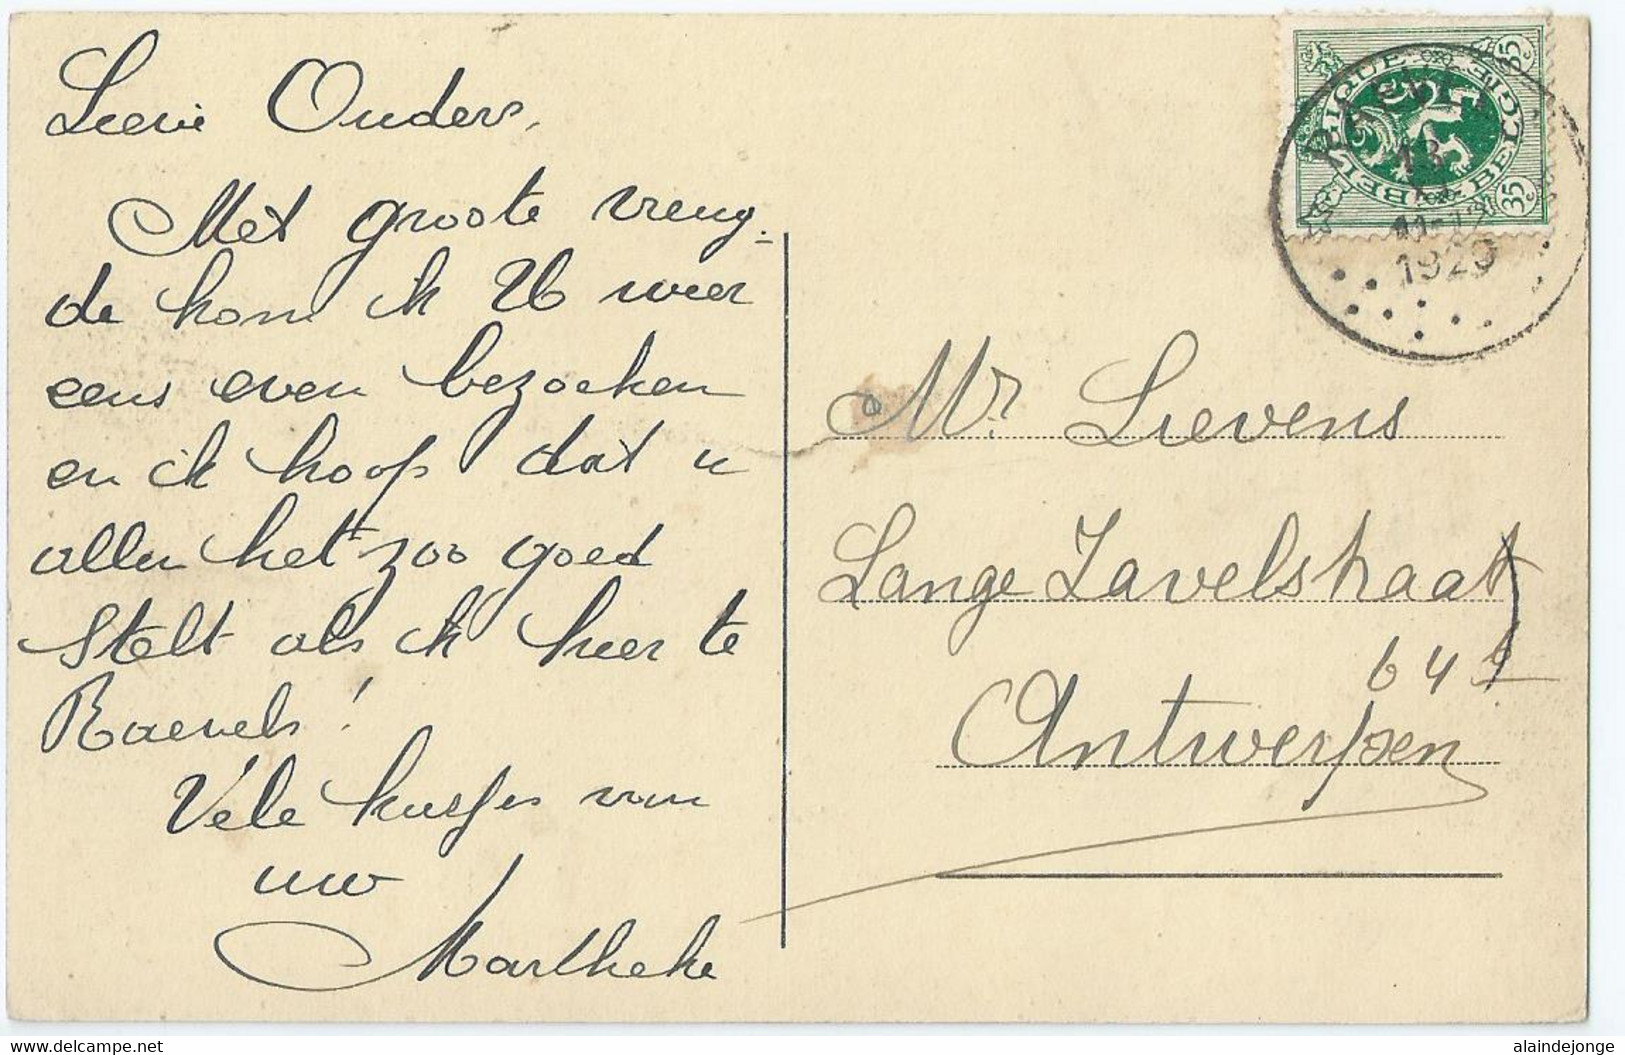 Lieve Ouders,
Met groote vreug-
de kom ik U weer
eens even bezoeken
en ik hoop dat u
allen het zoo goed
stelt als ik hier te
Raevels!
Vele kusjes van
uw
Martheke
BELGIQUE BELGIE
35c 35c
13
11-12
1929
Mr. Lievens
Lange Zavelstraat
64
Antwerpen
www.delcampe.net
alaindejonge